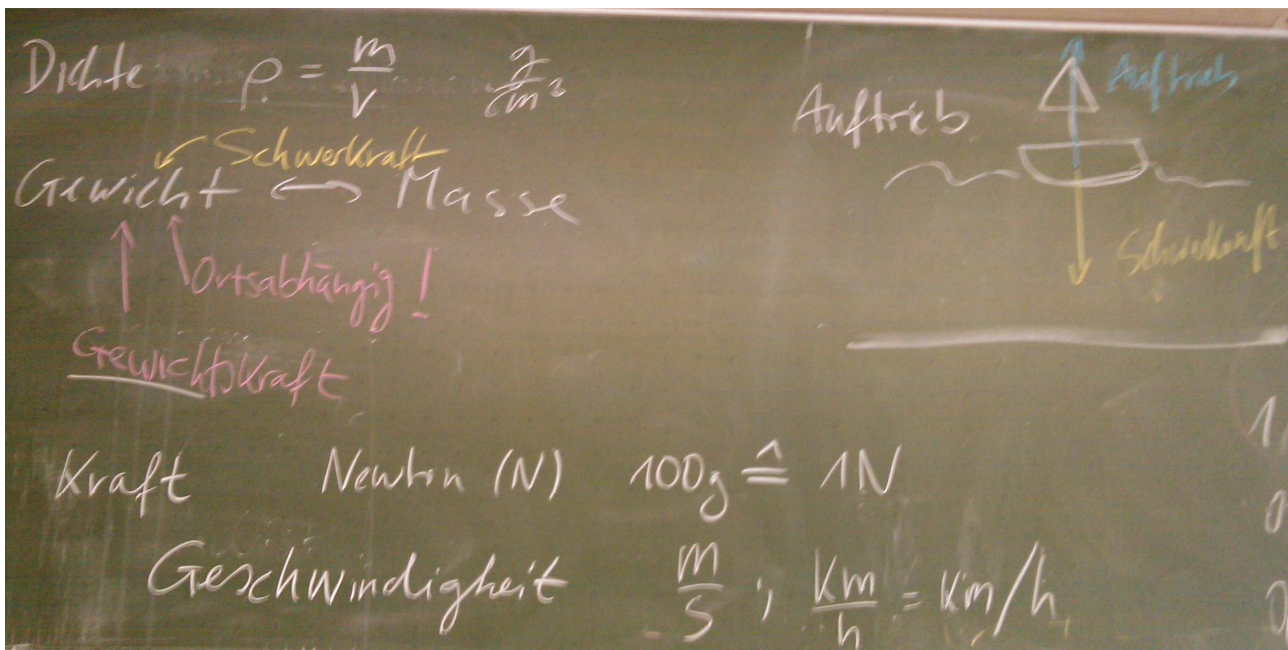 Dichte ρ = m/V g/cm³
Schwerkraft
Gewicht ↔ Masse
Ortsabhängig!
Gewichtskraft
Kraft Newton (N) 100g ≙ 1N
Geschwindigkeit m/s ; km/h = km/h
Auftrieb
Auftrieb
Schwerkraft